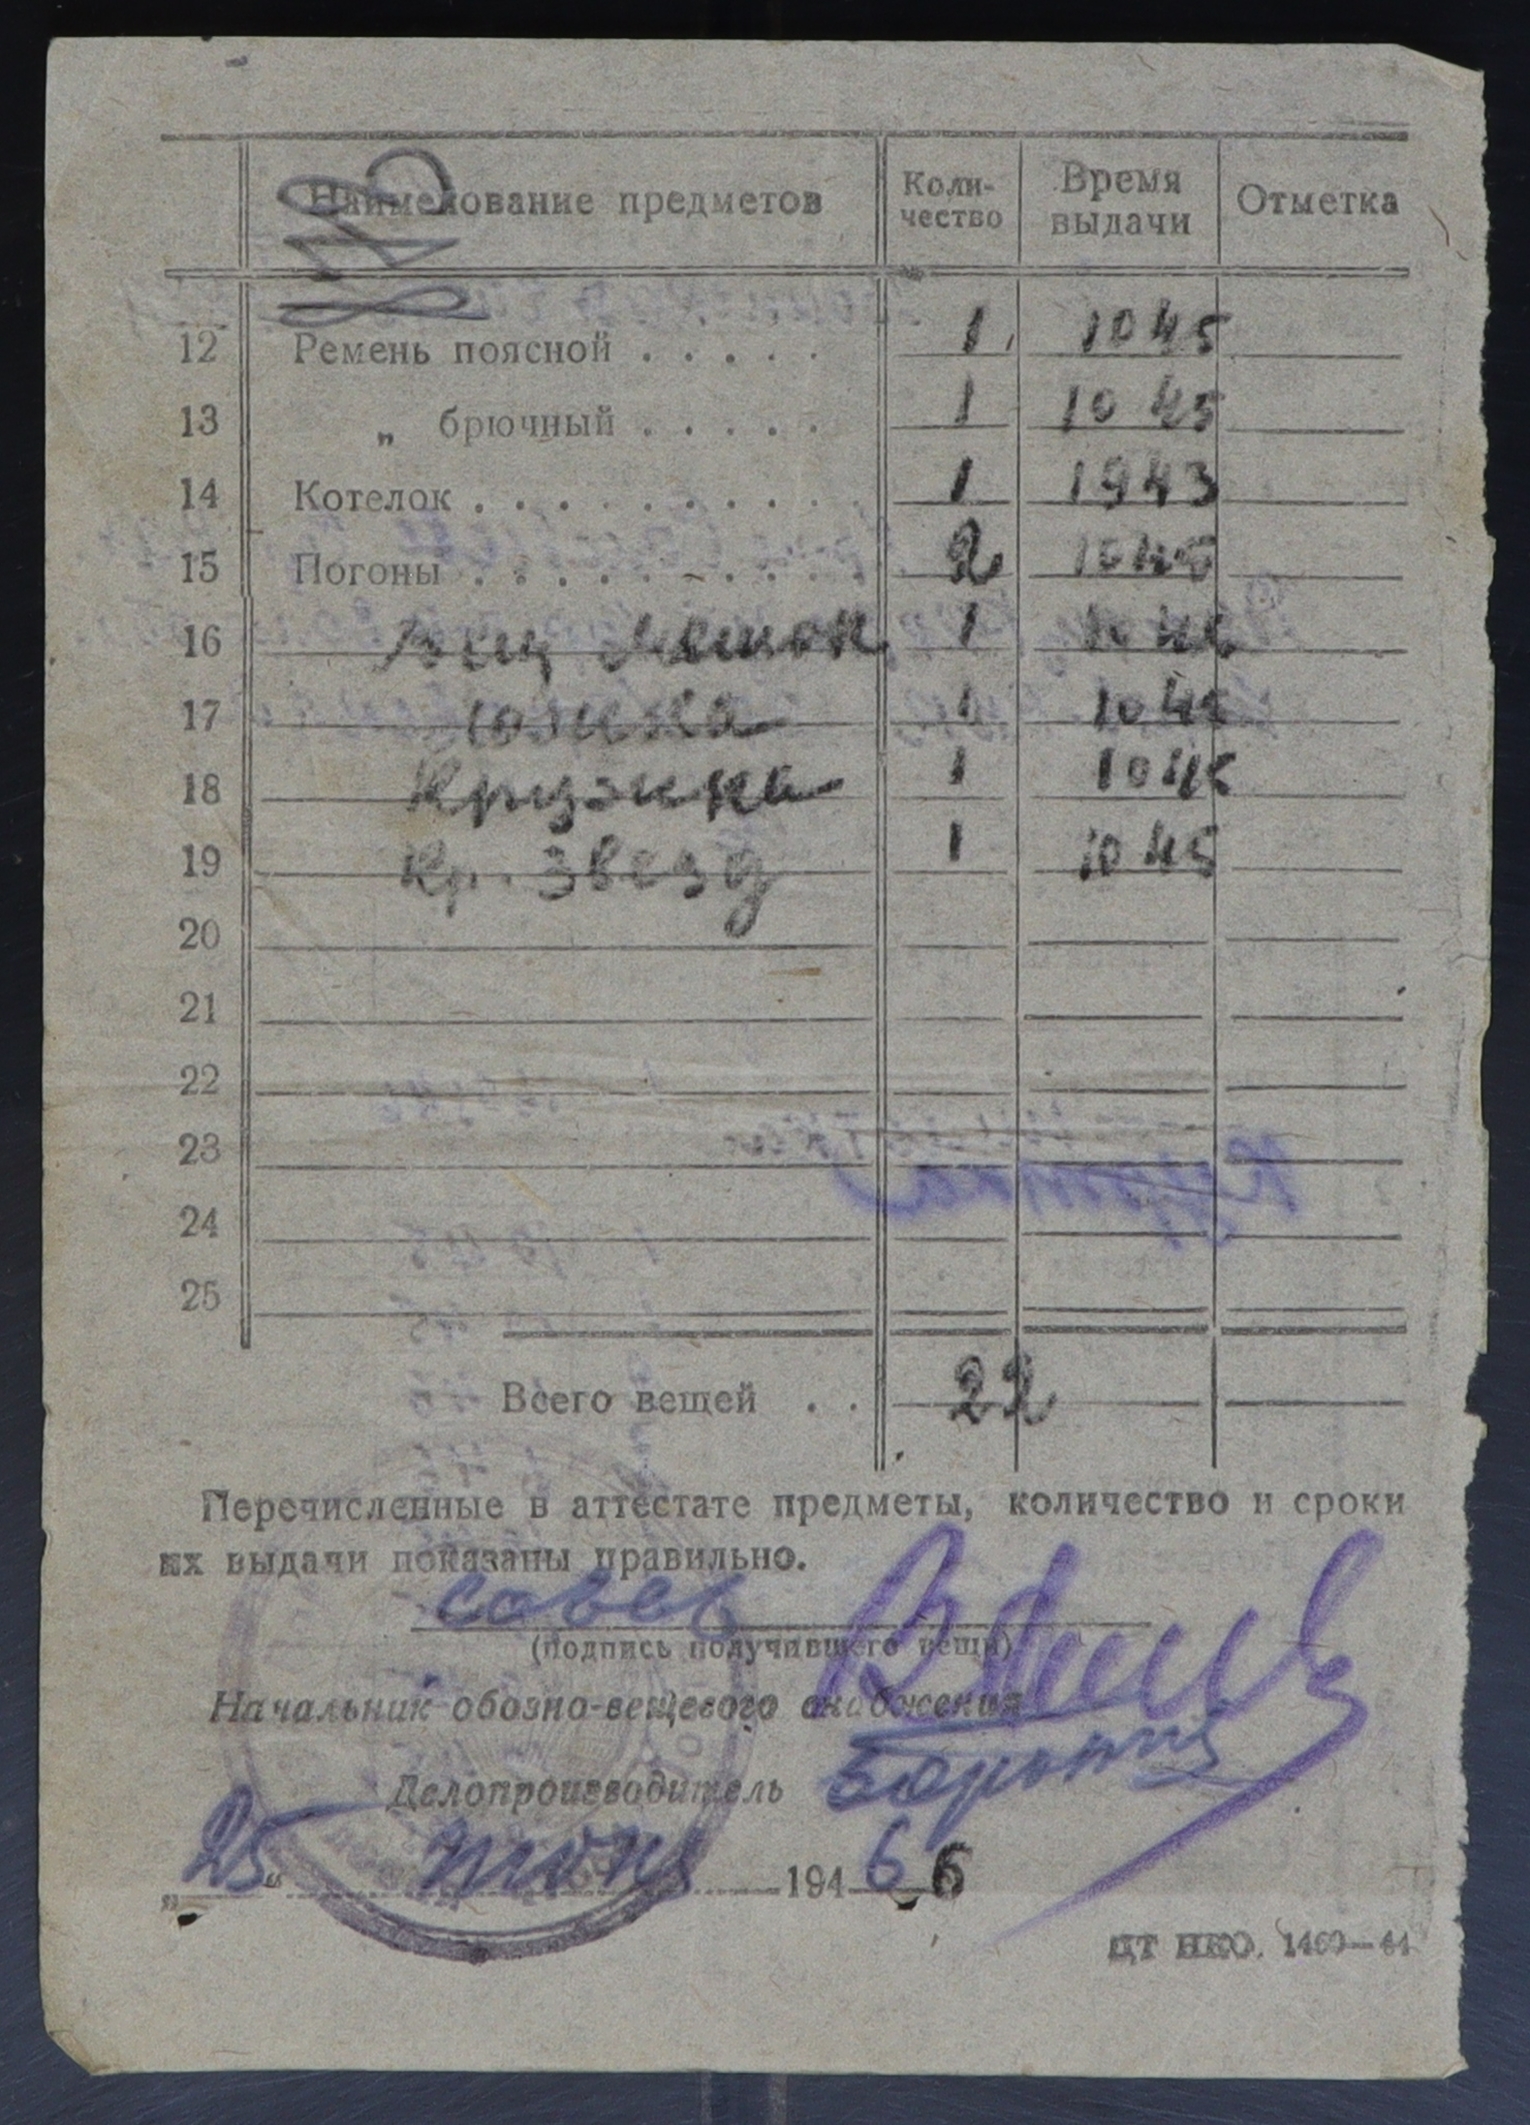 Наименование предметов Коли-чество Время выдачи Отметка
12 Ремень поясной . . . . . 1 1045
13 „ брючный . . . . . 1 10 45
14 Котелок . . . . . . . . . . 1 1943
15 Погоны . . . . . . . . . . . 2 1045
16 Вещ мешок 1 1046
17 1 1045
18 Кружка 1 1046
19 Кр. звезд 1 1045
20
21
22
23
24
25
Всего вещей . . 22
Перечисленные в аттестате предметы, количество и сроки
их выдачи показаны правильно.
(подпись получившего вещи)
Начальник обозно-вещевого снабжения
Делопроизводитель
„25“ 194 6 6
ЦТ НКО. 1460—44